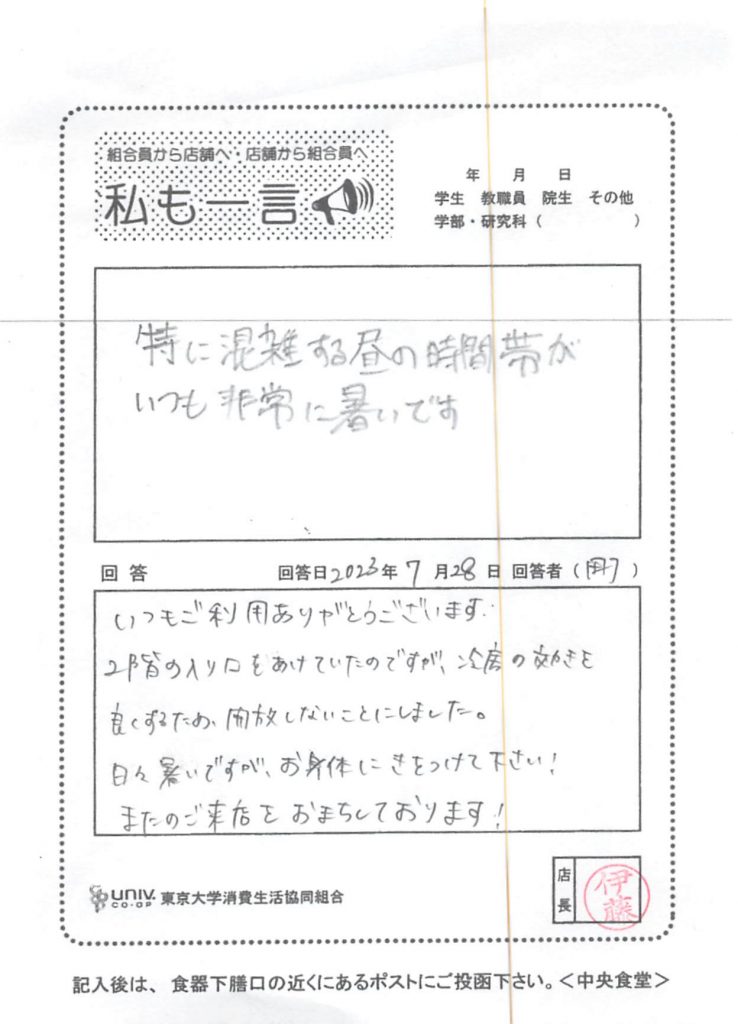 組合員から店舗へ・店舗から組合員へ
私も一言
年 月 日
学生 教職員 院生 その他
学部・研究科（ ）
特に混雑する昼の時間帯が
いつも非常に暑いです
回答 回答日2023年7月28日 回答者（ ）
いつもご利用ありがとうございます.
2階の入り口をあけていたのですが、冷房の効きを
良くするため、開放しないことにしました。
日々暑いですが、お身体にきをつけて下さい!
またのご来店をおまちしております!
UNIV. CO-OP 東京大学消費生活協同組合
店長 伊藤
記入後は、食器下膳口の近くにあるポストにご投函下さい。＜中央食堂＞